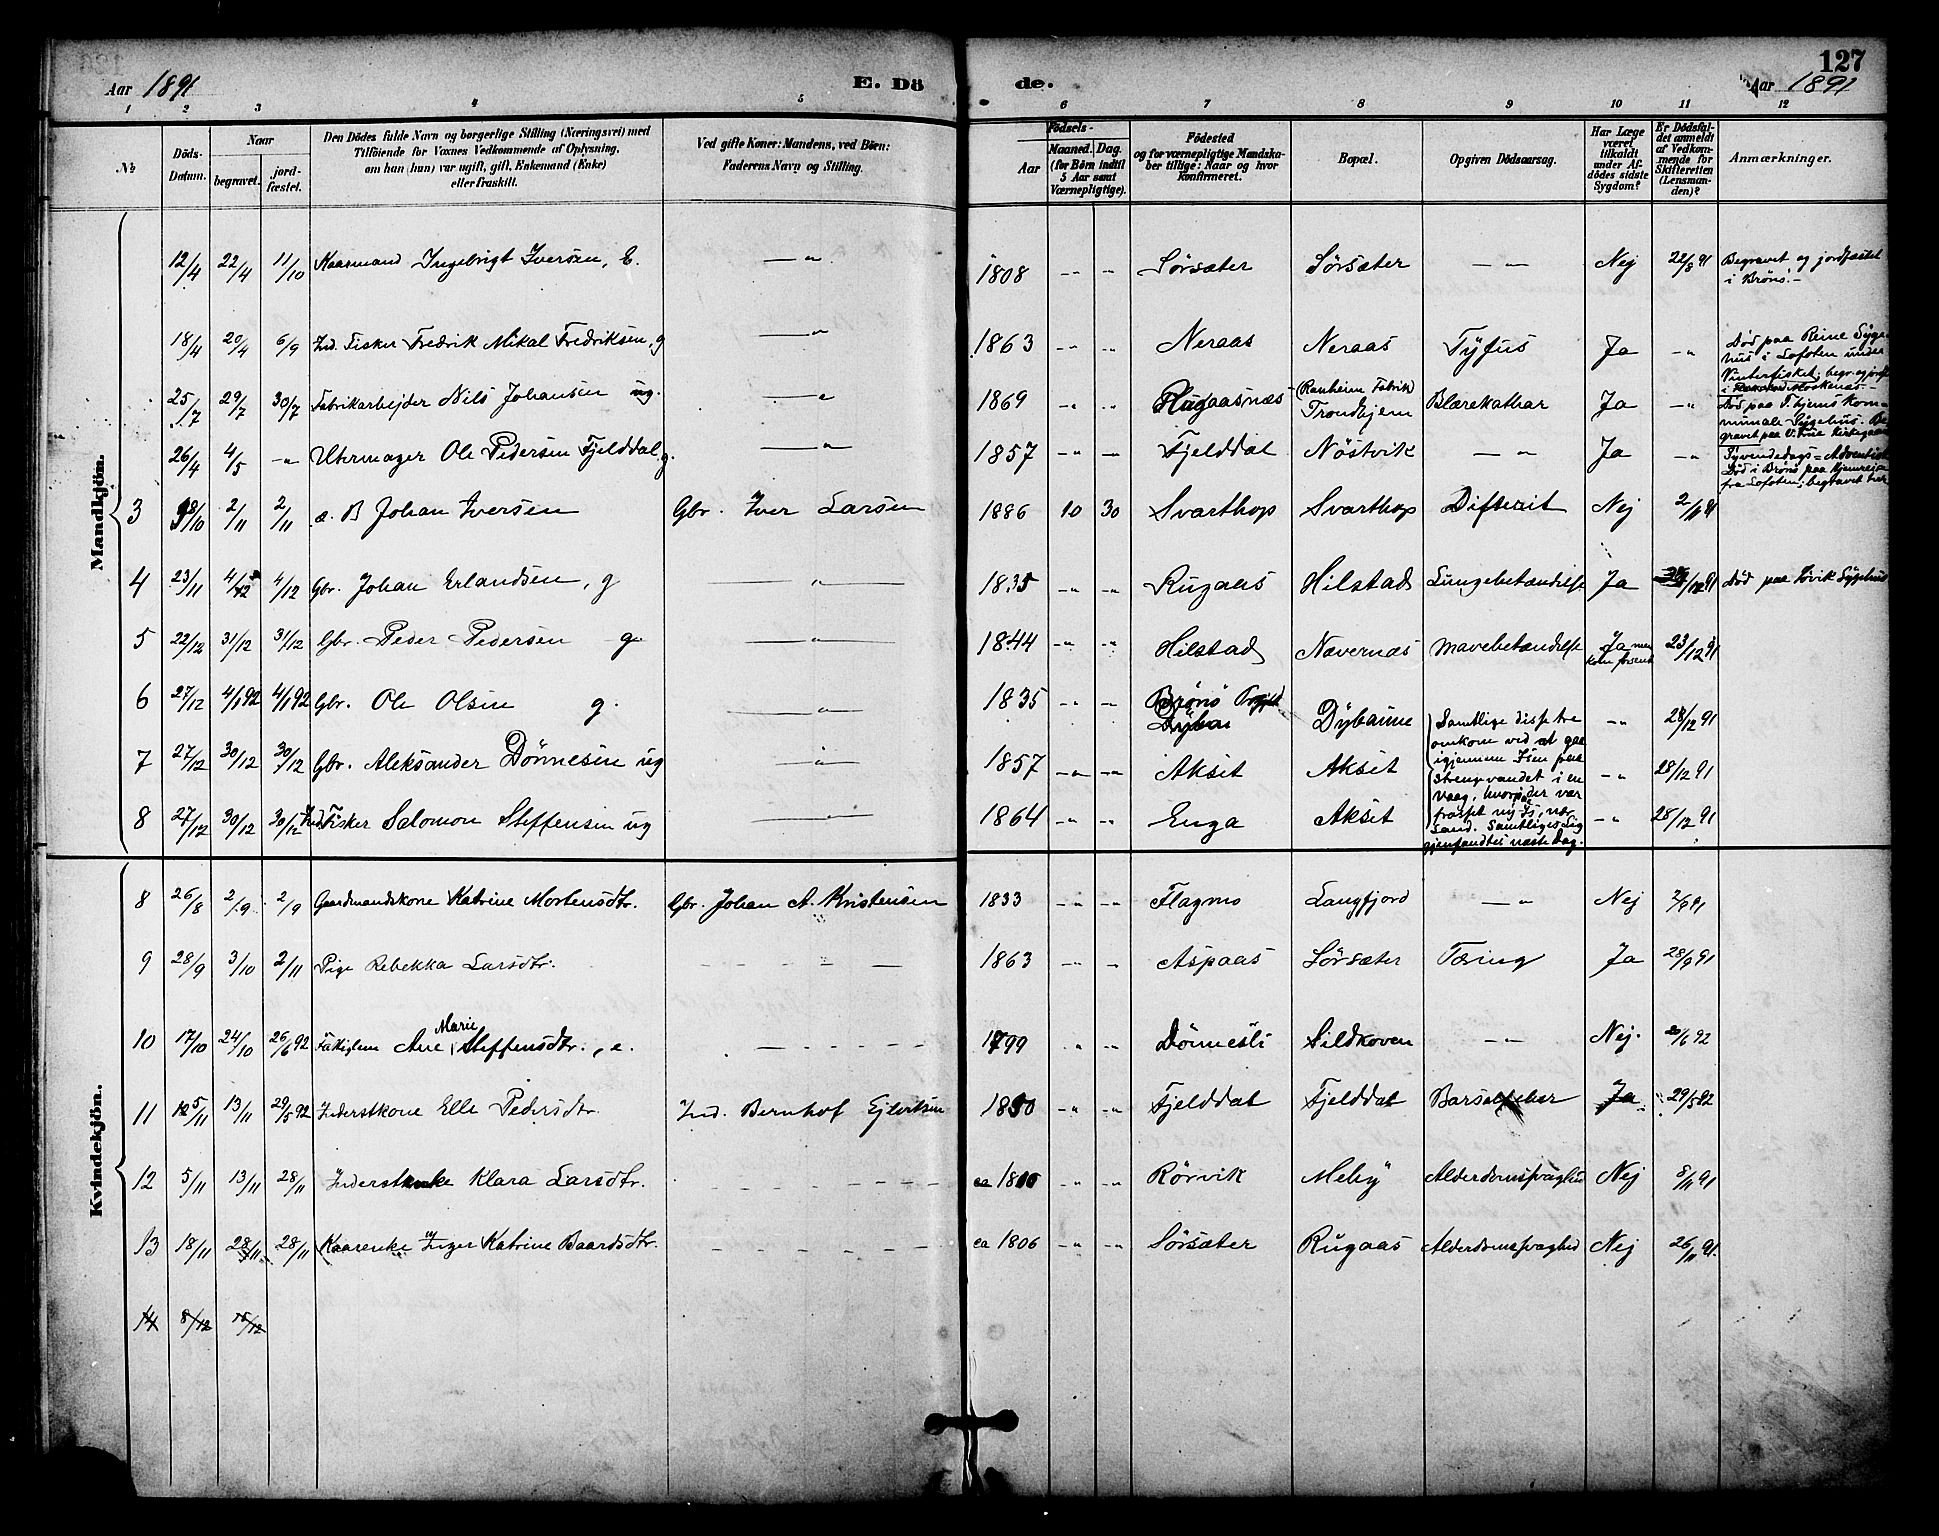 127
Aar 1891 E. Döde. Aar 1891
1 2 3 4 5 6 7 8 9 10 11 12
№ Döds-Datum. Naar begravet. jordfæstet. Den Dödes fulde Navn og borgerlige Stilling (Næringsvei) med Tilföiende for Voxnes Vedkommende af Oplysning, om han (hun) var ugift, gift, Enkemand (Enke) eller fraskilt. Ved gifte Koner: Mandens, ved Börn: Faderens Navn og Stilling. Födsels- Aar Maaned. Dag. (for Börn indtil 5 Aar samt Værnepligtige). Födested og for værnepligtige Mandskaber tillige: Naar og hvor Konfirmeret. Bopæl. Opgiven Dödsaarsag. Har Læge været tilkaldt under Afdödes sidste Sygdom? Er Dödsfaldet anmeldt af Vedkommende for Skifteretten (Lensmanden)? Anmærkninger.
Mandkjön.
12/4 22/4 11/10 Kaarmand Ingebrigt Iversen, E. —"— 1808 -"- -"- Sörsæter Sörsæter —"— Nej 22/8 91 Begravet og jordfæstet i Brönö.-
18/4 20/4 6/9 Ind. Fisker Fredrik Mikal Fredriksen, g —"— 1863 -"- -"- Neraas Neraas Tÿfus Ja -"- Död paa Reine Sygehus i Lofoten under Vinterfisket; begr. og jordf. i Moskenæs-
25/7 29/7 30/7 Fabrikarbejder Nils Johansen ug. —"— 1869 -"- -"- Rugaasnæs (Ranheim Fabrik) Trondhjem Blærekathar Ja -"- Död paa T.hjems kommunale Sÿgehus. Begravet paa V. Frue Kirkegaard
26/4 4/5 -"- Uhrmager Ole Pedersen Fjelddal, g. —"— 1857 -"- -"- Fjelddal Nöstvik —"— Ja -"- Syvendedags=Adventist Död i Brönö paa Hjemrejse fra Lofoten; begravet her
3 18/10 2/11 2/11 æ. B Johan Iversen Gbr. Iver Larsen 1886 10 30 Svarthop Svarthop Difterit Nej 2/11 91
4 23/11 4/12 4/12 Gbr. Johan Erlandsen, g —"— 1835 -"- -"- Rugaas Hilstad Lungebetændelse Ja /12 91 Död paa Sövik Sÿgehus
5 22/12 31/12 31/12 Gbr. Peder Pedersen g. —"— 1844 -"- -"- Hilstad Nævernæs Mavebetændelse Ja men kom forsent 23/12 91
6 27/12 4/1 92 4/1 92 Gbr. Ole Olsen g. —"— 1835 -"- -"- Brönö Prgjld Dÿbaune -"- 28/12 91
7 27/12 30/12 30/12 Gbr. Aleksander Dönnesen ug —"— 1857 -"- -"- Akset Akset -"- 28/12 91
8 27/12 30/12 30/12 Ind. Fisker Salomon Steffensen ug —"— 1864 -"- -"- Enga Akset -"- 28/12 91
Samtlige disse tre
omkom ved at gaa
igjennem Isen paa
strengvandet i en
Vaag, hvorpaa der var
frosset ny Is, nær
Land. Samtliges Lig
gjenfandtes næste Dag.
Kvindekjön.
8 26/8 2/9 2/9 Gaardmandskone Katrine Mortensdtr. Gbr. Johan A. Kristensen 1833 -"- -"- Flagmo Langfjord —"— Nej 2/9 91
9 28/9 3/10 2/11 Pige Rebekka Larsdtr. 1863 -"- -"- Aspaas Sörsæter Tæring Ja 28/9 91
10 17/10 24/10 26/6 92 Fattiglem Ane Marie Steffensdtr., e. 1799 -"- -"- Dönnesli Sildhoven —"— Nej. 20/6 92
11 5/11 13/11 29/5 92 Inderstkone Elle Pedersdtr. Ind. Bernhof Ejlertsen 1850 -"- -"- Fjelddal Fjelddal Barselfeber Ja 29/5 92
12 5/11 13/11 28/11 Inderstenke Klara Larsdtr. ca 1810 -"- -"- Rörvik Mebÿ Alderdomssvaghed Nej 8/11 91
13 18/11 28/11 28/11 Kaarenke Inger Katrine Baardsdtr. ca 1806 -"- -"- Sörsæter Rugaas Alderdomssvaghed Nej 26/11 91.
14 8/12 15/12